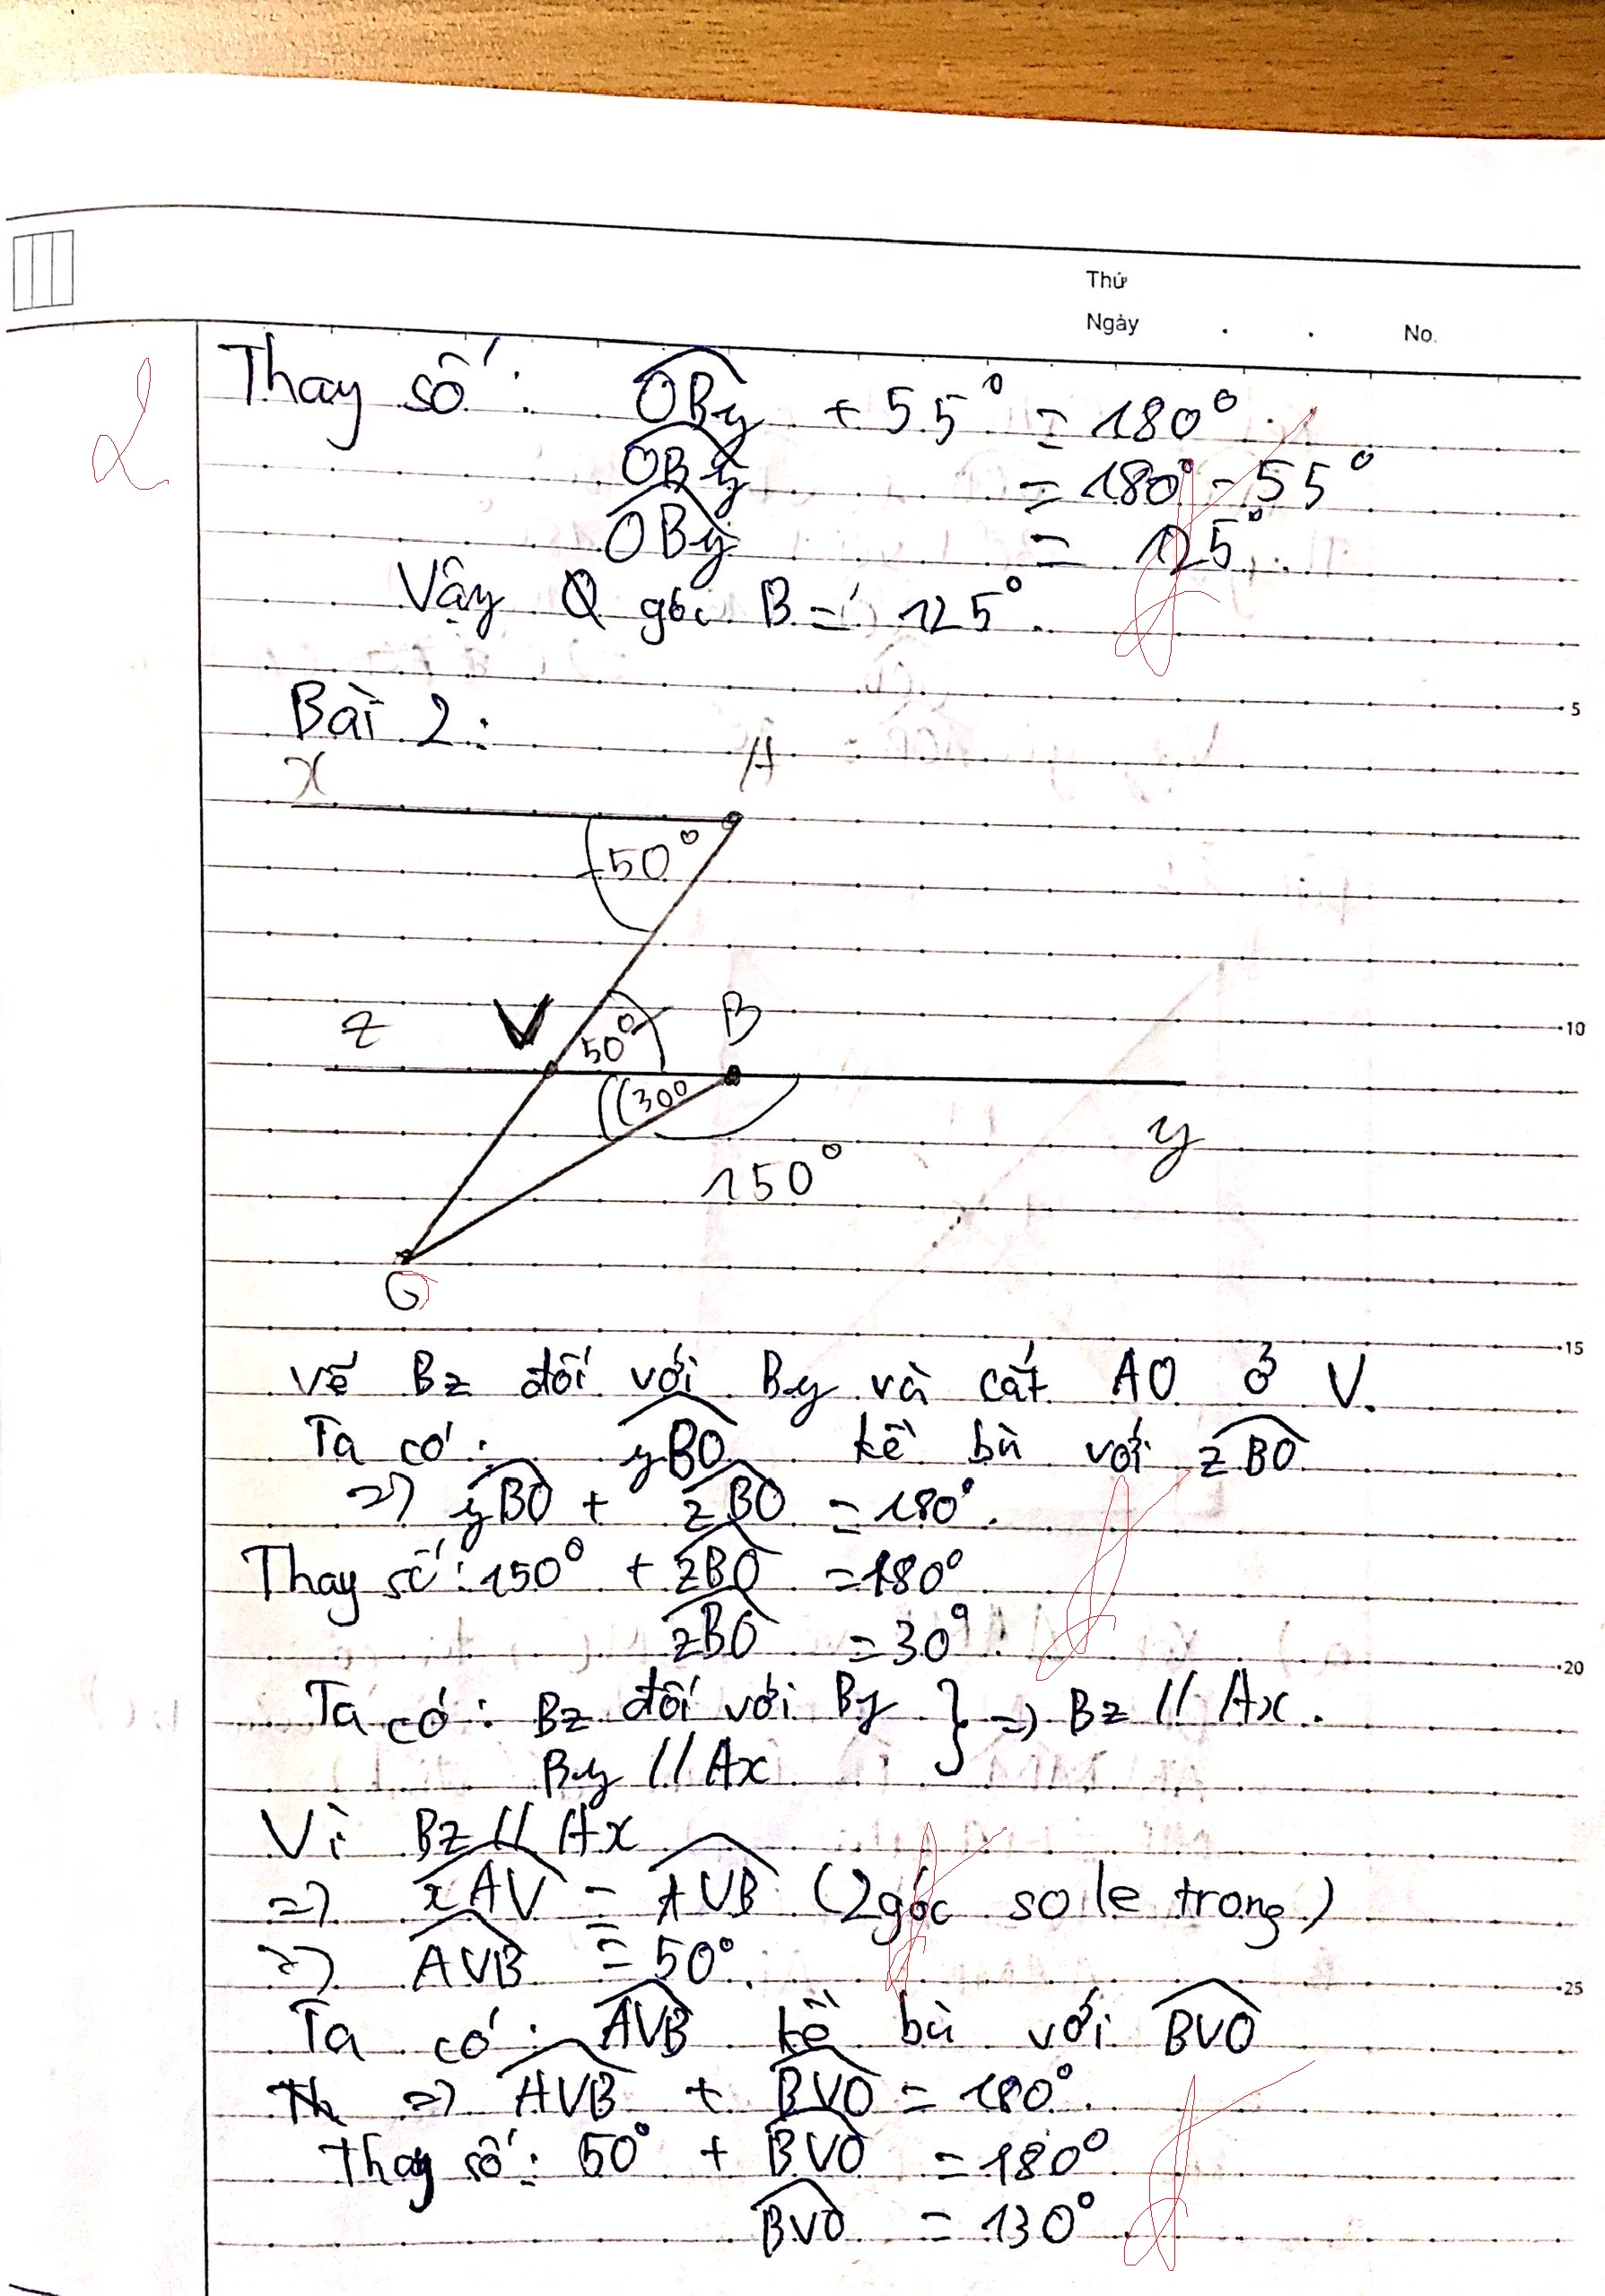 Thứ
Ngày . . No.
2
Thay số: OBy + 55° = 180°
OBy = 180° - 55°
OBy = 125°
Vậy góc B = 125°.
5
Bài 2:
x A
50°
z V 50° B
10
300
y
150°
O
15
Vẽ Bz đối với By và cắt AO ở V.
Ta có: yBO kề bù với zBO
=> yBO + zBO = 180°.
Thay số: 150° + zBO = 180°
zBO = 30°
20
Ta có: Bz đối với By } => Bz // Ax.
By // Ax
Vì Bz // Ax
=> xAV = AVB (2 góc so le trong)
=> AVB = 50°.
25
Ta có: AVB kề bù với BVO
=> AVB + BVO = 180°.
Thay số: 50° + BVO = 180°
BVO = 130°